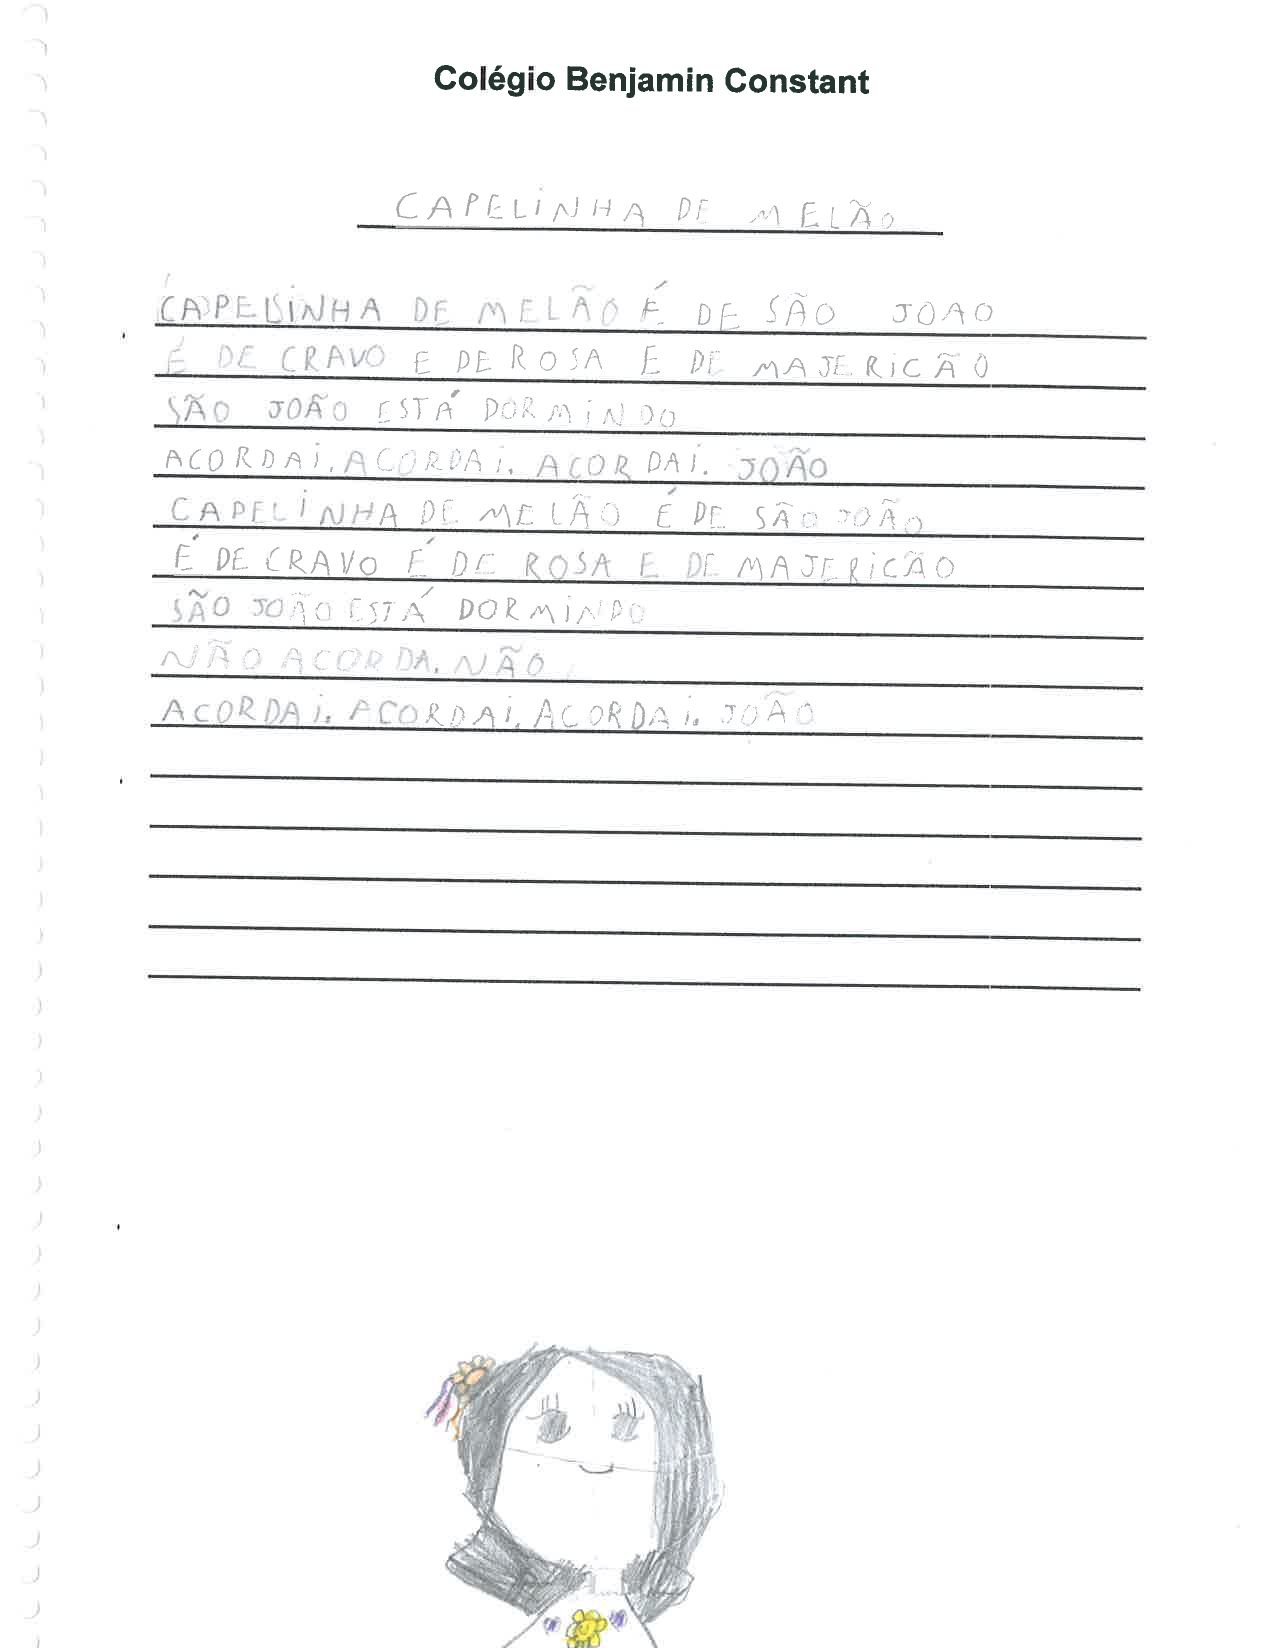 Colégio Benjamin Constant
CAPELINHA DE MELÃO
CAPELINHA DE MELÃO É DE SÃO JOAO
É DE CRAVO E DE ROSA E DE MAJERICÃO
SÃO JOÃO ESTÁ DORMINDO
ACORDAI. ACORDAI. ACORDAI. JOÃO
CAPELINHA DE MELÃO É DE SÃO JOÃO
É DE CRAVO É DE ROSA E DE MAJERICÃO
SÃO JOÃO ESTÁ DORMINDO
NÃO ACORDA. NÃO
ACORDAI. ACORDAI. ACORDAI. JOÃO